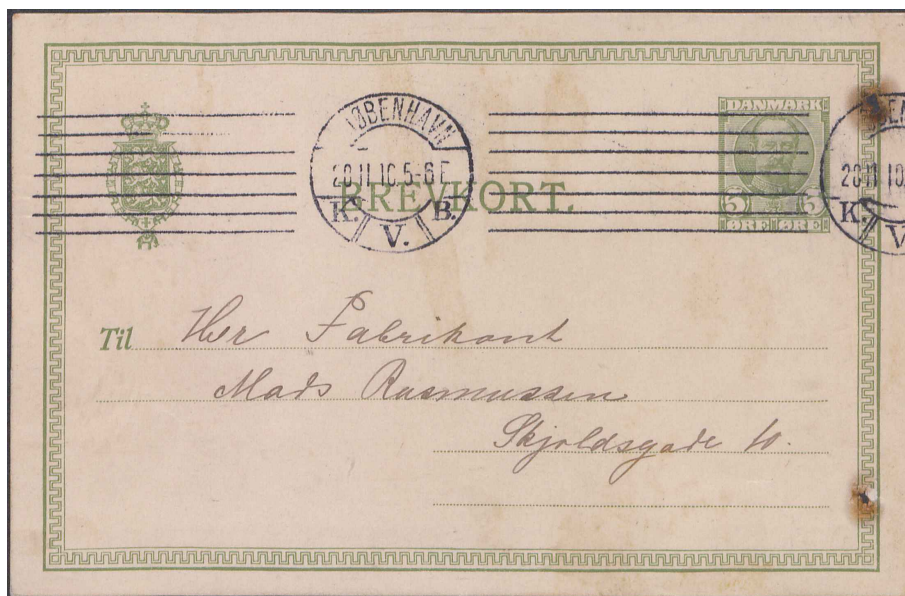 KØBENHAVN
20.11.10.5-6 E
K. V. B.
BREVKORT.
DANMARK
5 5
ØRE ØRE
20.11.10.
K. V
Til Herr Fabrikant
Mads Rasmussen
Skjoldsgade 10.